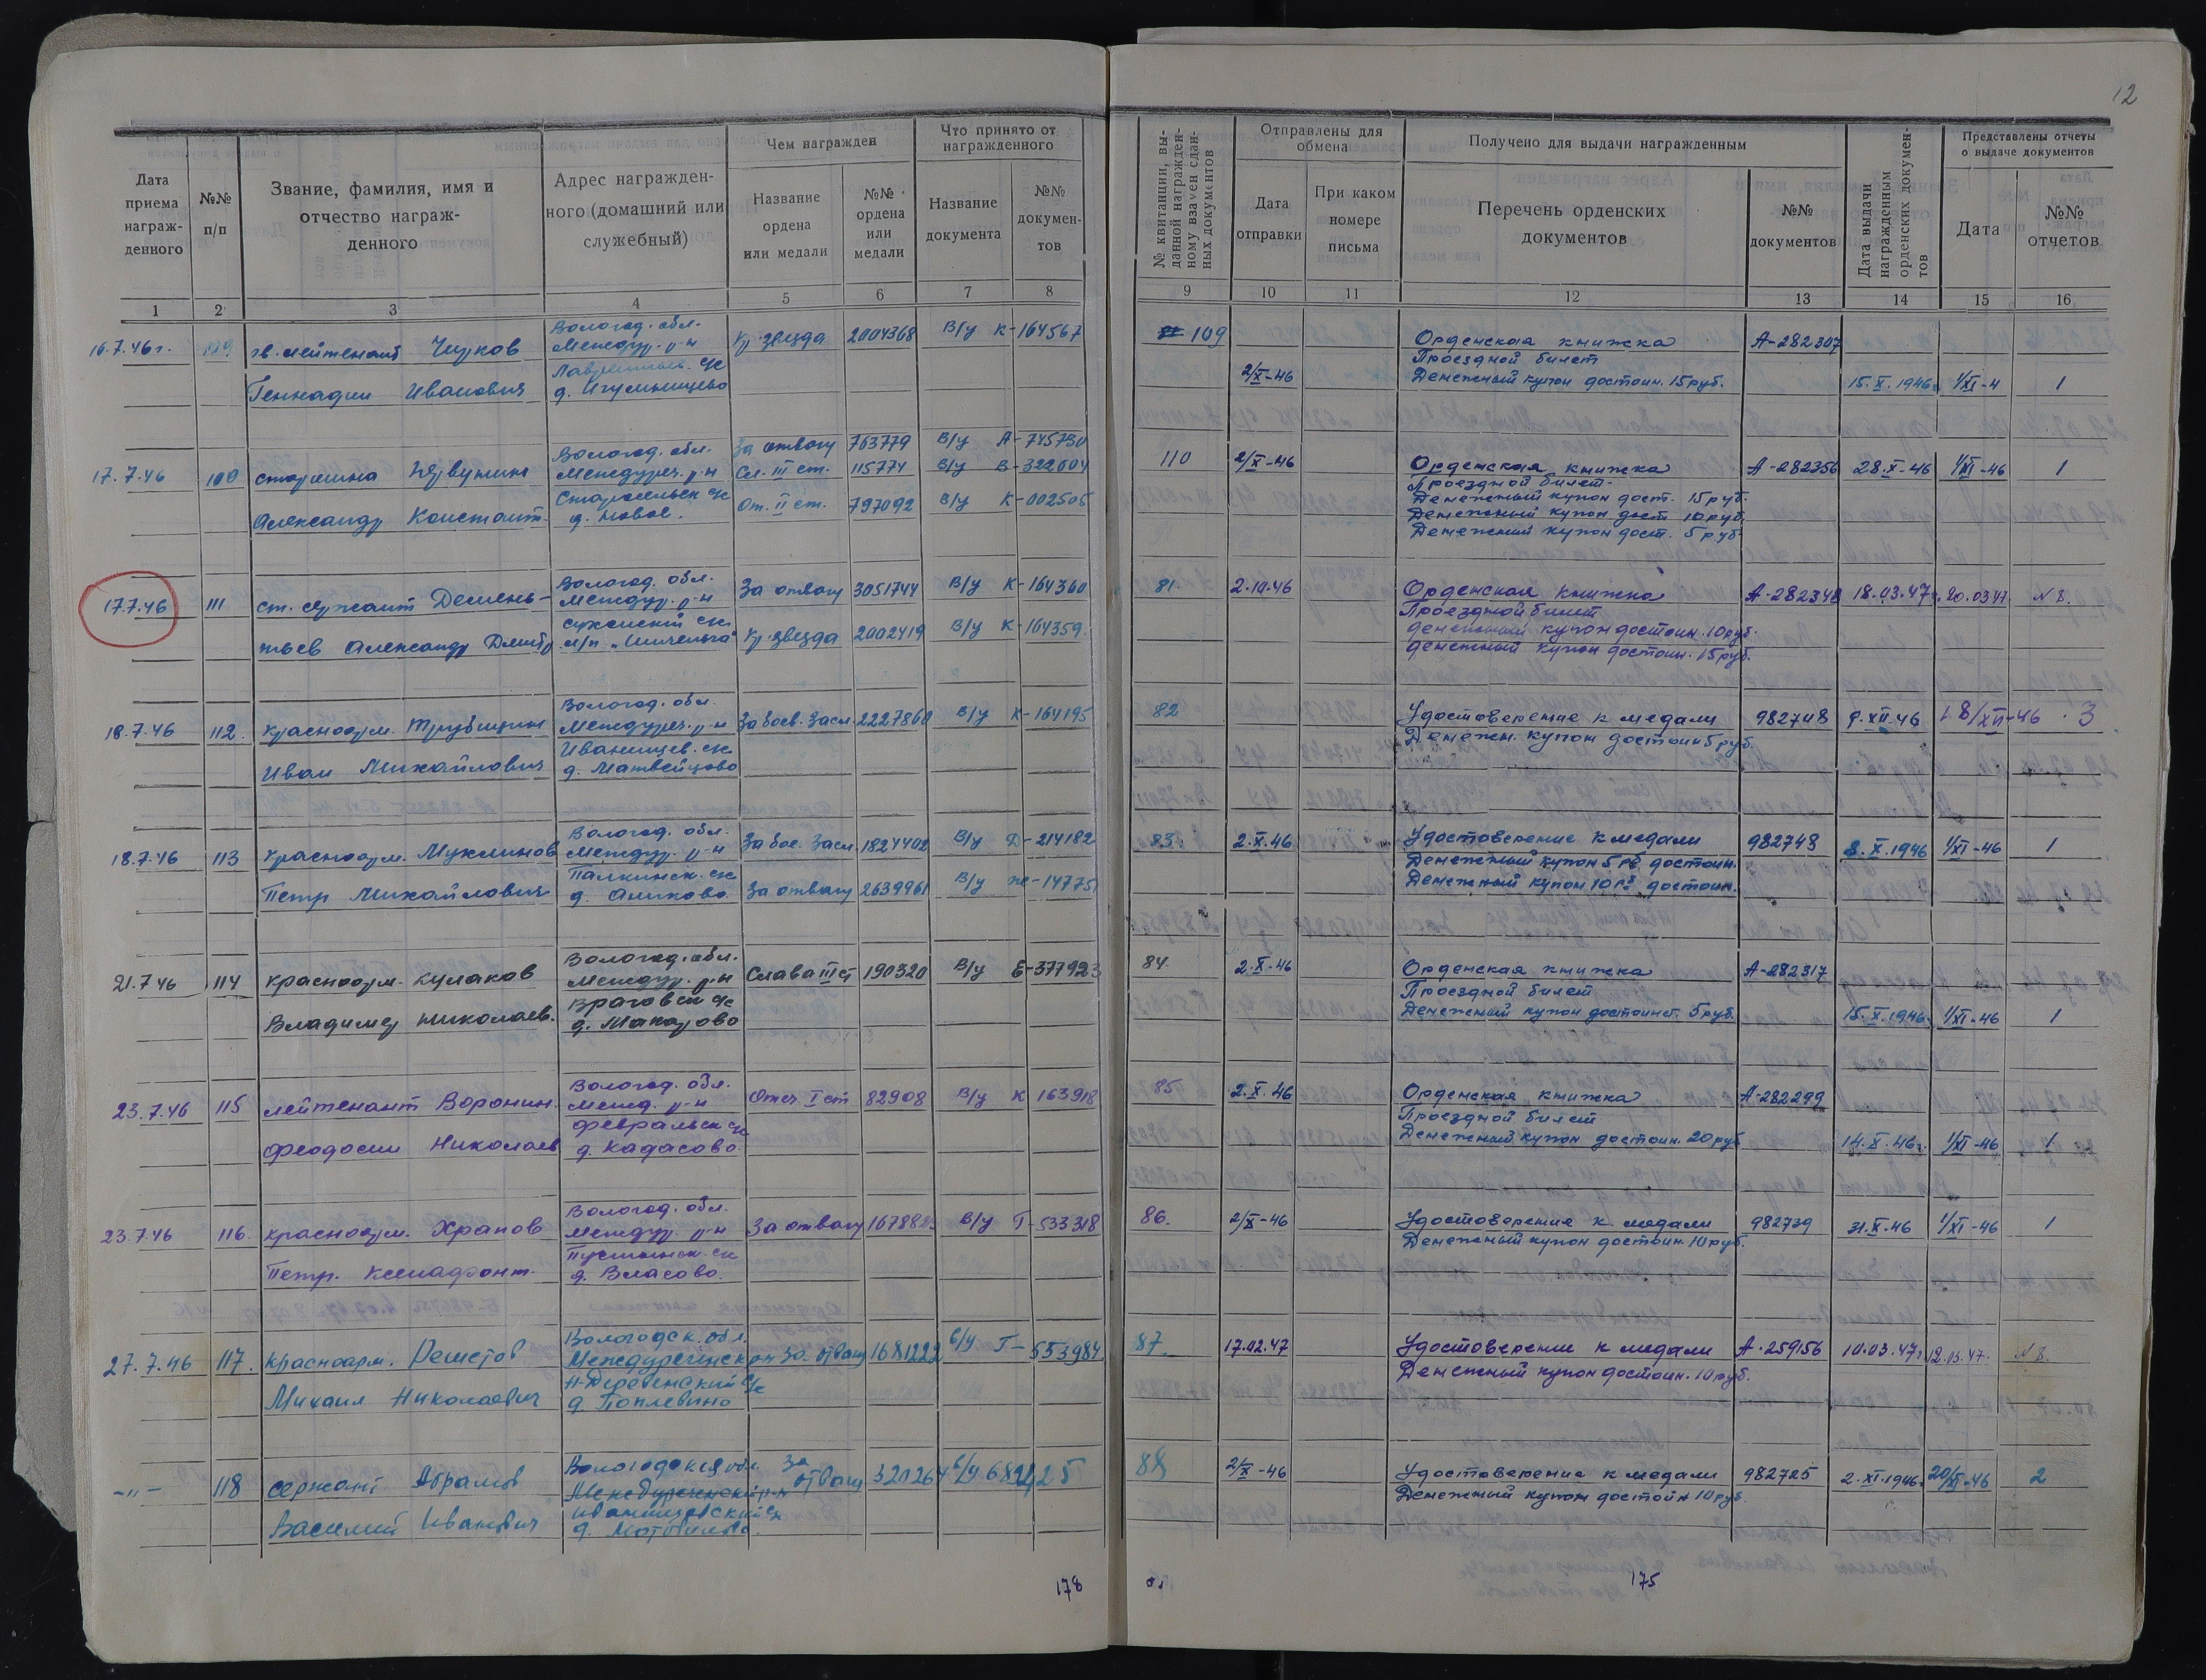 12
Дата приема награж-денного
№№ п/п
Звание, фамилия, имя и отчество награж-денного
Адрес награжден-ного (домашний или служебный)
Чем награжден
Название ордена или медали
№№ ордена или медали
Что принято от награжденного
Название документа
№№ докумен-тов
№ квитанции, вы-данной награжден-ному взамен сдан-ных документов
Отправлены для обмена
Дата отправки
При каком номере письма
Получено для выдачи награжденным
Перечень орденских документов
№№ документов
Дата выдачи награжденным орденских докумен-тов
Представлены отчеты о выдаче документов
Дата
№№ отчетов
1 2 3 4 5 6 7 8 9 10 11 12 13 14 15 16
Вологод. обл.
16.7.46г. гв. лейтенант Чирков Междур. р-н Кр. звезда 2004368 В/у К-164567 109 Орденская книжка А-282307
Проездной билет
Геннадии Иванович д. Игумницево 2/X-46 Денежный купон достоин. 15 руб. 15.X.1946г. 1/XI-4 1
За отвагу 763779 В/у А-745730
Вологод. обл.
17.7.46 старшина Междуреч. р-н Сл. III ст. 115774 В/у В-322604 110 2/X-46 Орденская книжка А-282356 28.X-46 1/XI-46 1
Проездной билет
Александр Констант. д. Новое. От. II ст. 797092 В/у К-002505 Денежный купон дост. 15 руб.
Денежный купон дост 10 руб.
Денежный купон дост. 5 руб.
Вологод. обл.
17.7.46 111 ст. сержант Демень- Междур. р-н За отвагу 3051744 В/у К-164360 81. 2.10.46 Орденская книжка А-282348 18.03.47г. 20.03.47. N 8.
Проездной билет
тьев Александр Дмитр Кр. звезда 2002419 В/у К-164359. денежный купон достоин. 10 руб.
денежный купон достоин. 15 руб.
Вологод. обл.
18.7.46 112. красноарм. Трубицин Междуреч. р-н За боев. засл. 2227860 В/у К-164195 82 Удостоверение к медали 982748 9.XII.46 18/XII-46 3
Иванищев. с/с Денежн. купон достоин 5 руб.
Иван Михайлович д. Матвейцово
Вологод. обл.
18.7.46 113 красноарм. Муклинов Междур. р-н За бое. засл. 1824402 В/у Д-214182 83. 2.X.46 Удостоверение к медали 982748 8.X.1946 1/XI-46 1
Денежный купон 5 рб достоин.
Петр Михайлович д. Аниково. За отвагу 2639961 В/у же-14775 Денежный купон 10 рб достоин.
Вологод. обл.
21.7.46 114 красноарм. Кулаков Междур. р-н Слава III ст 190320 В/у Е-377923 84. 2.X-46 Орденская книжка А-282317
Проездной билет
Владимир Николаев. д. Макарово Денежный купон достоинст. 5 руб. 15.X.1946г. 1/XI-46 1
Вологод. обл.
23.7.46 115 лейтенант Воронин. Межд. р-н Отеч. I ст 82908 В/у К 163918 85 2.X.46 Орденская книжка А-282299
Февральск с/с Проездной билет
Феодосии Николаев д. Кадасово Денежный купон достоин. 20 руб 14.X.46г. 1/XI-46 1
Вологод. обл.
23.7.46 116. красноарм. Храпов Междур. р-н За отвагу В/у Т-533318 86. 2/X-46 Удостоверение к медали 982739 31.X.46 1/XI-46 1
Денежный купон достоин. 10 руб.
Петр. Ксенафонт. д. Власово.
Вологодск. обл.
27.7.46 117. красноарм. Решетов Междуреченск р-н За отвагу 1681222 В/у Т-553984 87. 17.02.47 Удостоверение к медали А-259156 10.03.47г. 12.03.47. N 8.
Н-Деревенский с/с Денежный купон достоин. 10 руб.
Михаил Николаевич д. Поплевино
Вологодская обл.
-"- 118 сержант Абрамов Междуреченский р-н За отвагу 320264 88 2/X-46 Удостоверение к медали 982725 2.XI.1946г. 20/XI-46 2
Иванищевский с/с Денежный купон достойн 10 руб.
Василий Иванович д.
178 175